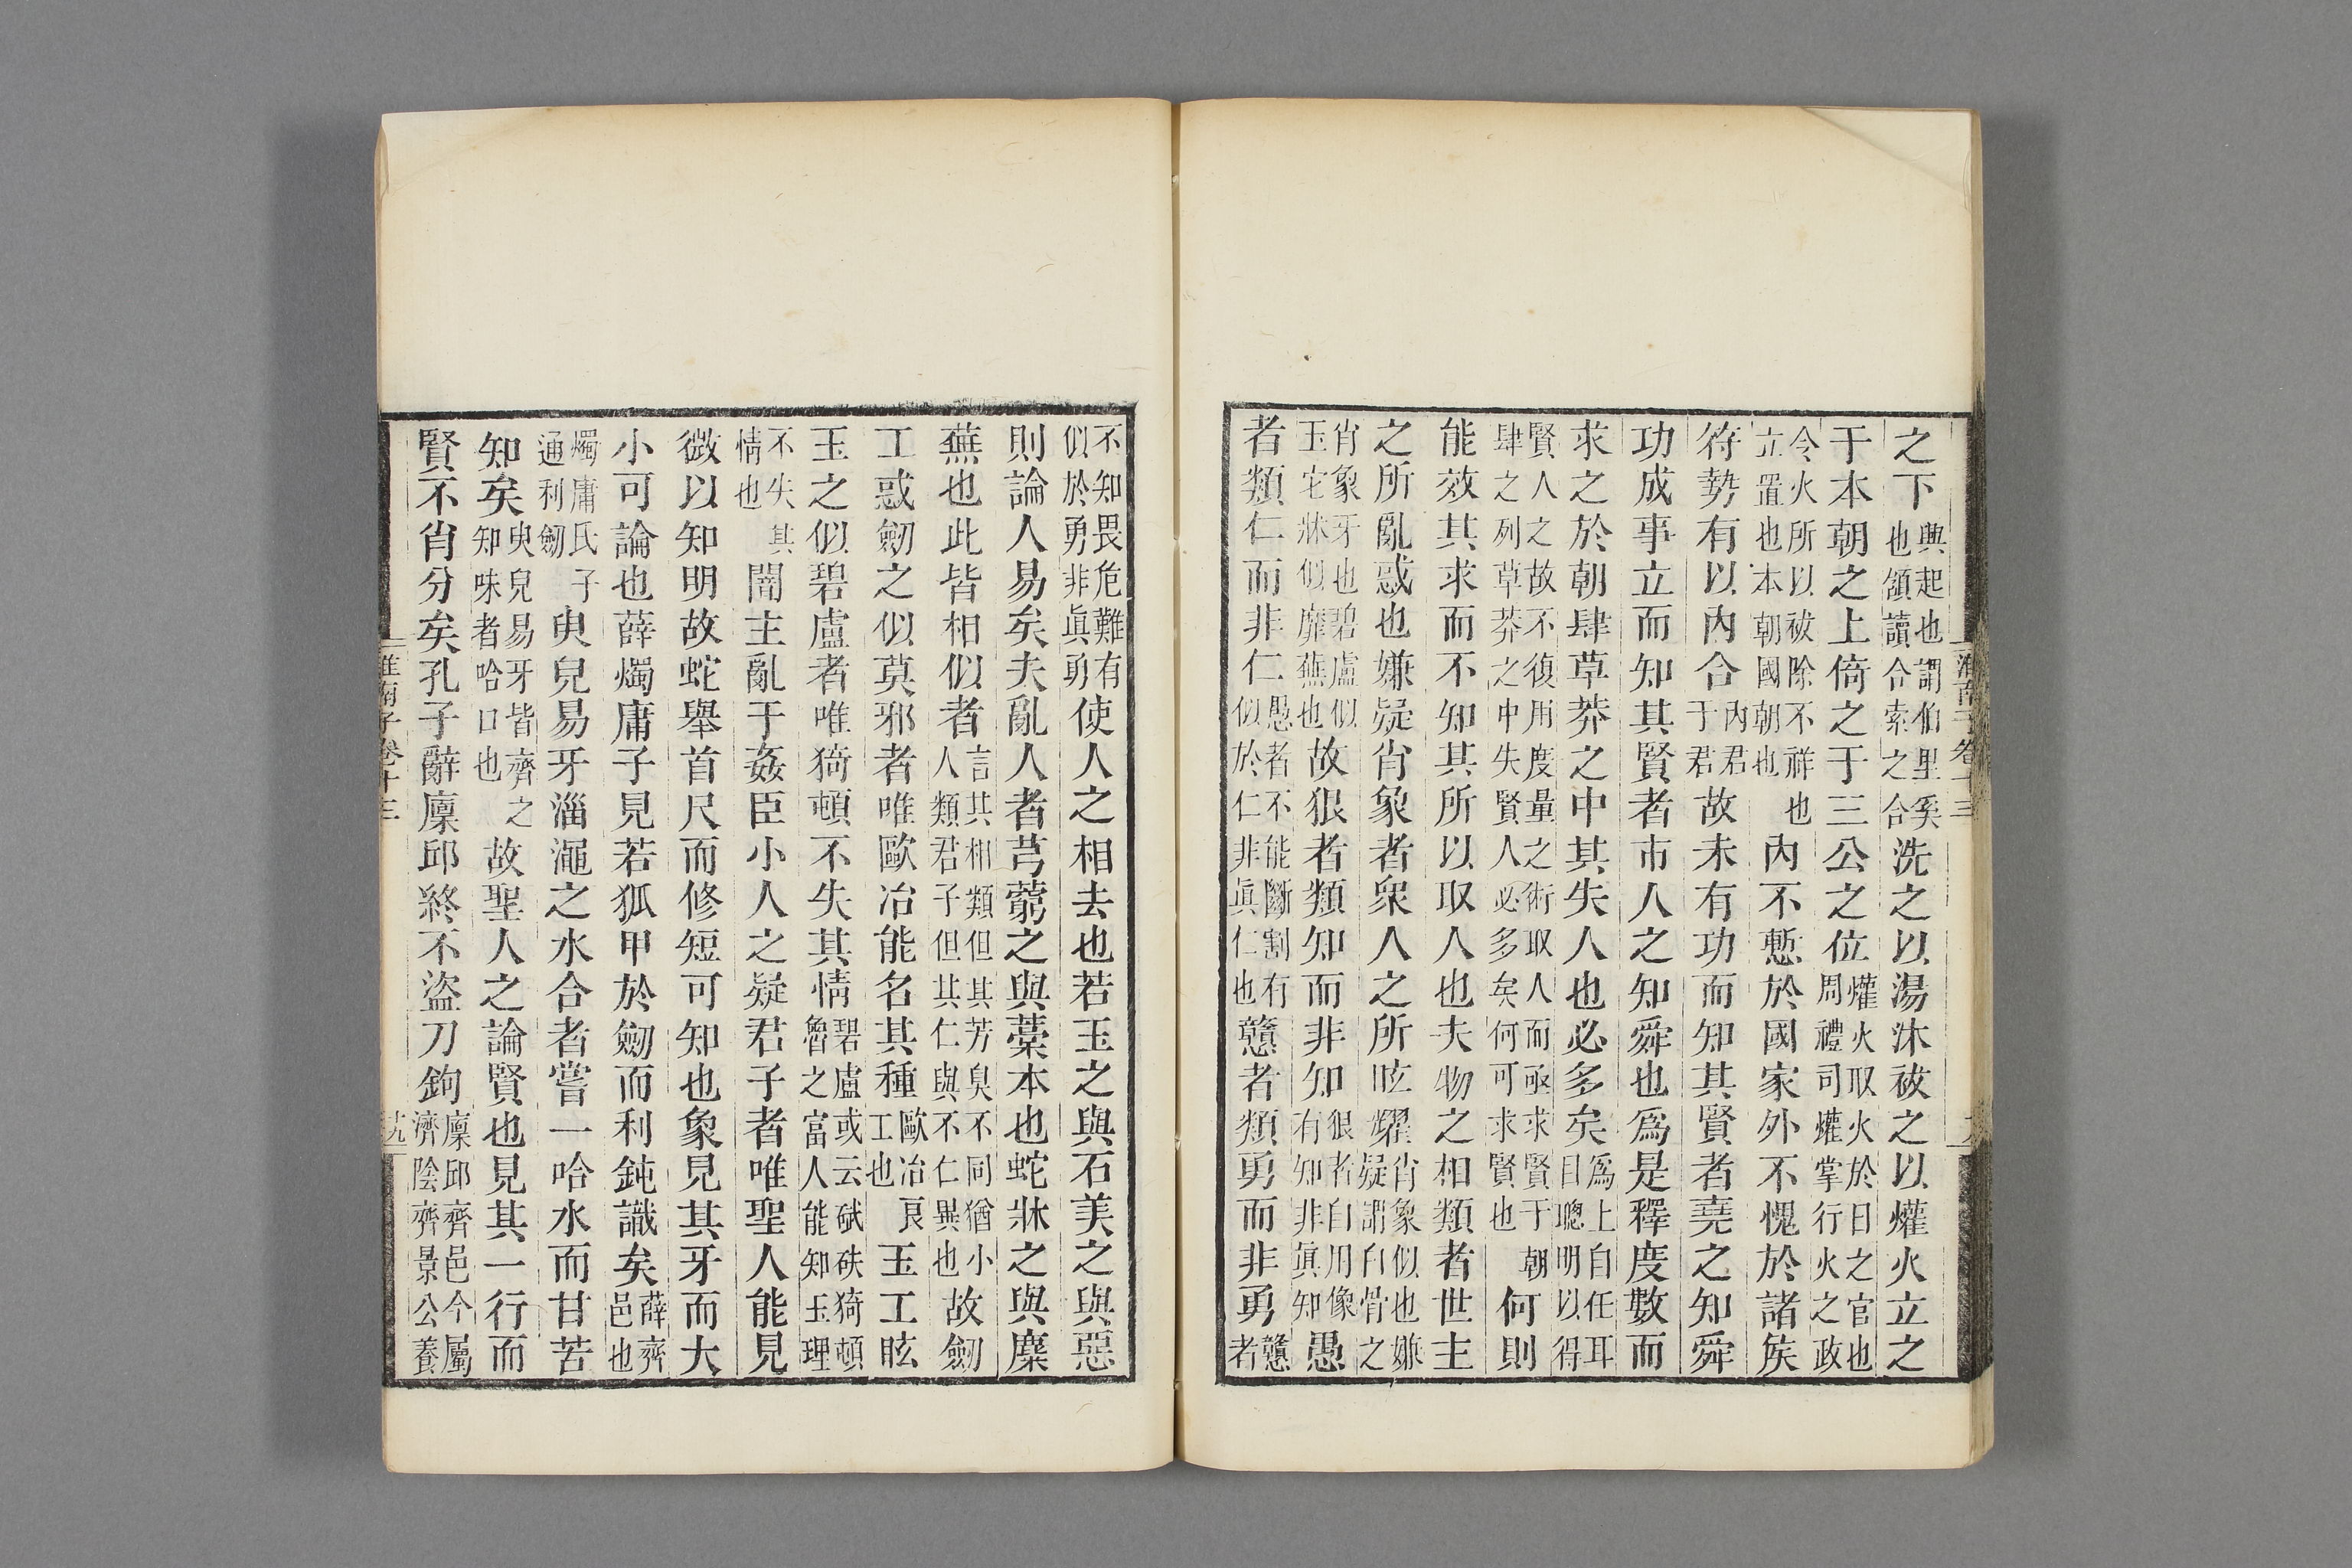 之下興起也謂伯里奚也頷讀合索之合洗之以湯沐祓之以爟火立之
于本朝之上倚之于三公之位爟火取火於日之官也周禮司爟掌行火之政
令火所以祓除不祥也立置也本朝國朝也內不慙於國家外不愧於諸矦
符勢有以內合內君于君故未有功而知其賢者堯之知舜
功成事立而知其賢者市人之知舜也爲是釋度數而
求之於朝肆草莽之中其失人也必多矣爲上自任耳目聰明以得
賢人人之故不復用度量之術取人而亟求賢于朝肆之列草莽之中失賢人必多矣何可求賢也何則
能效其求而不知其所以取人也夫物之相類者世主
之所亂惑也嫌疑肖象者衆人之所眩燿肖象似也嫌疑謂白骨之
肖象牙也碧盧似玉它牀似蘼蕪也故狠者類知而非知狠者自用像有知非眞知愚
者類仁而非仁愚者不能斷割有似於仁非眞仁也戇者類勇而非勇戇者
不知畏危難有似於勇非眞勇使人之相去也若玉之與石美之與惡
則論人易矣夫亂人者芎藭之與藁本也蛇牀之與麋
蕪也此皆相似者言其相類但其芳臭不同猶小人類君子但其仁與不仁異也故劒
工惑劒之似莫邪者唯歐冶能名其種歐冶良工也玉工眩
玉之似碧盧者唯猗頓不失其情碧盧或云碔砆猗頓魯之富人能知玉理
不失其情也闇主亂于姦臣小人之疑君子者唯聖人能見
微以知明故蛇舉首尺而修短可知也象見其牙而大
小可論也薛燭庸子見若狐甲於劒而利鈍識矣薛齊邑也
燭庸氏子通利劒臾兒易牙淄澠之水合者嘗一哈水而甘苦
知矣臾兒易牙皆齊之知味者哈口也故聖人之論賢也見其一行而
賢不肖分矣孔子辭廩邱終不盜刀鉤廩邱齊邑今屬濟陰齊景公養
淮南子卷十三
十九